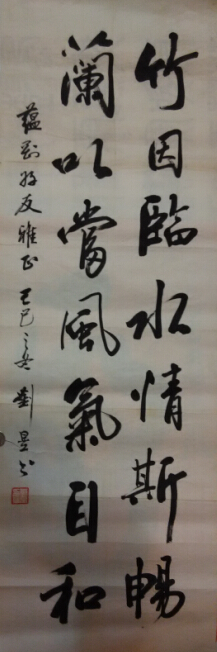 竹因臨水情斯暢
蘭以當風氣自和
蘊剛好友雅正 己巳之冬 劉星书